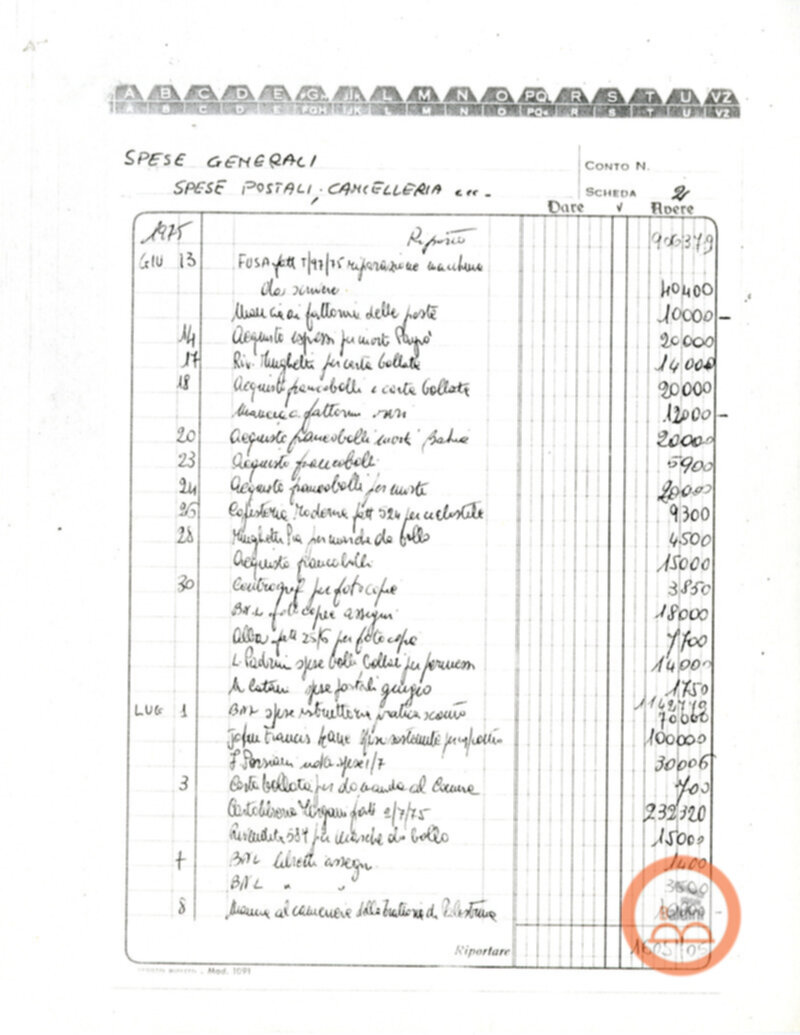 A B C D E F-G-H I-J-K L M N O PQ R S T U VZ
A B C D E FGH IJK L M N O PQ R S T U VZ
SPESE GENERALI
CONTO N.
SPESE POSTALI, CANCELLERIA ...
SCHEDA 2
Dare √ Avere
1975 Riporto 906379
GIU 13 FUSA fatt T/97/75 riparazione macchina
da scrivere 40400
Mancia ai fattorini delle poste 10000 -
14 Acquisto espressi per 20000
17 Riv. Minghetti per carta bollata 14000
18 Acquisto francobolli e carta bollata 20000
Mancia a fattorini vari 12000 -
20 Acquisto francobolli Bahia 20000
23 Acquisto francobolli 5900
24 Acquisto francobolli per 20000
26 Moderna fatt 524 per 9300
28 Minghetti per marche da bollo 4500
Acquisto francobolli 15000
30 Centrograf per fotocopie 3850
BNL fotocopie assegni 18000
Alba fatt 25/6 per fotocopie 7700
L. Padrini spese bolli per permessi 14000
spese postali giugno 1750
1142779
LUG 1 BNL spese istruttoria pratica sconto 70000
John Francis Lane spese sostenute per 100000
nota spese 1/7 30006
3 Carta bollata per domanda al 700
fatt 2/7/75 232320
Rivendita 584 per marche da bollo 15000
7 BNL libretti assegni 1400
BNL " " 3500
8 Mancia al cameriere della trattoria di Palestrina
Riportare
Mod. 1091